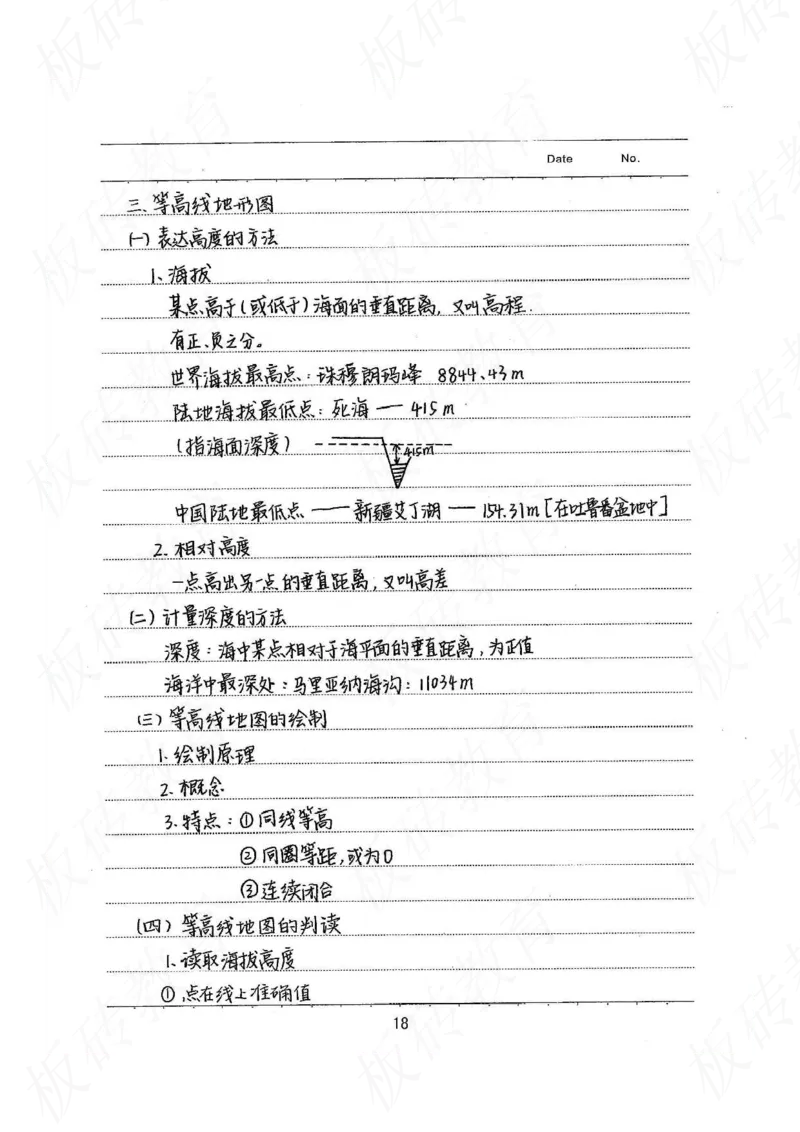 Date No.
三、等高线地形图
(一)表达高度的方法
1、海拔
某点高于(或低于)海面的垂直距离,又叫高程.
有正、负之分。
世界海拔最高点:珠穆朗玛峰 8844.43m
陆地海拔最低点:死海 — 415m
(指海面深度)
415m
中国陆地最低点 — 新疆艾丁湖 — 154.31m[在吐鲁番盆地中]
2.相对高度
一点高出另一点的垂直距离,又叫高差
(二)计量深度的方法
深度:海中某点相对于海平面的垂直距离,为正值
海洋中最深处:马里亚纳海沟:11034m
(三)等高线地图的绘制
1.绘制原理
2.概念
3.特点:①同线等高
②同圈等距,或为0
③连续闭合
(四)等高线地图的判读
1.读取海拔高度
①.点在线上准确值
18
板砖教育